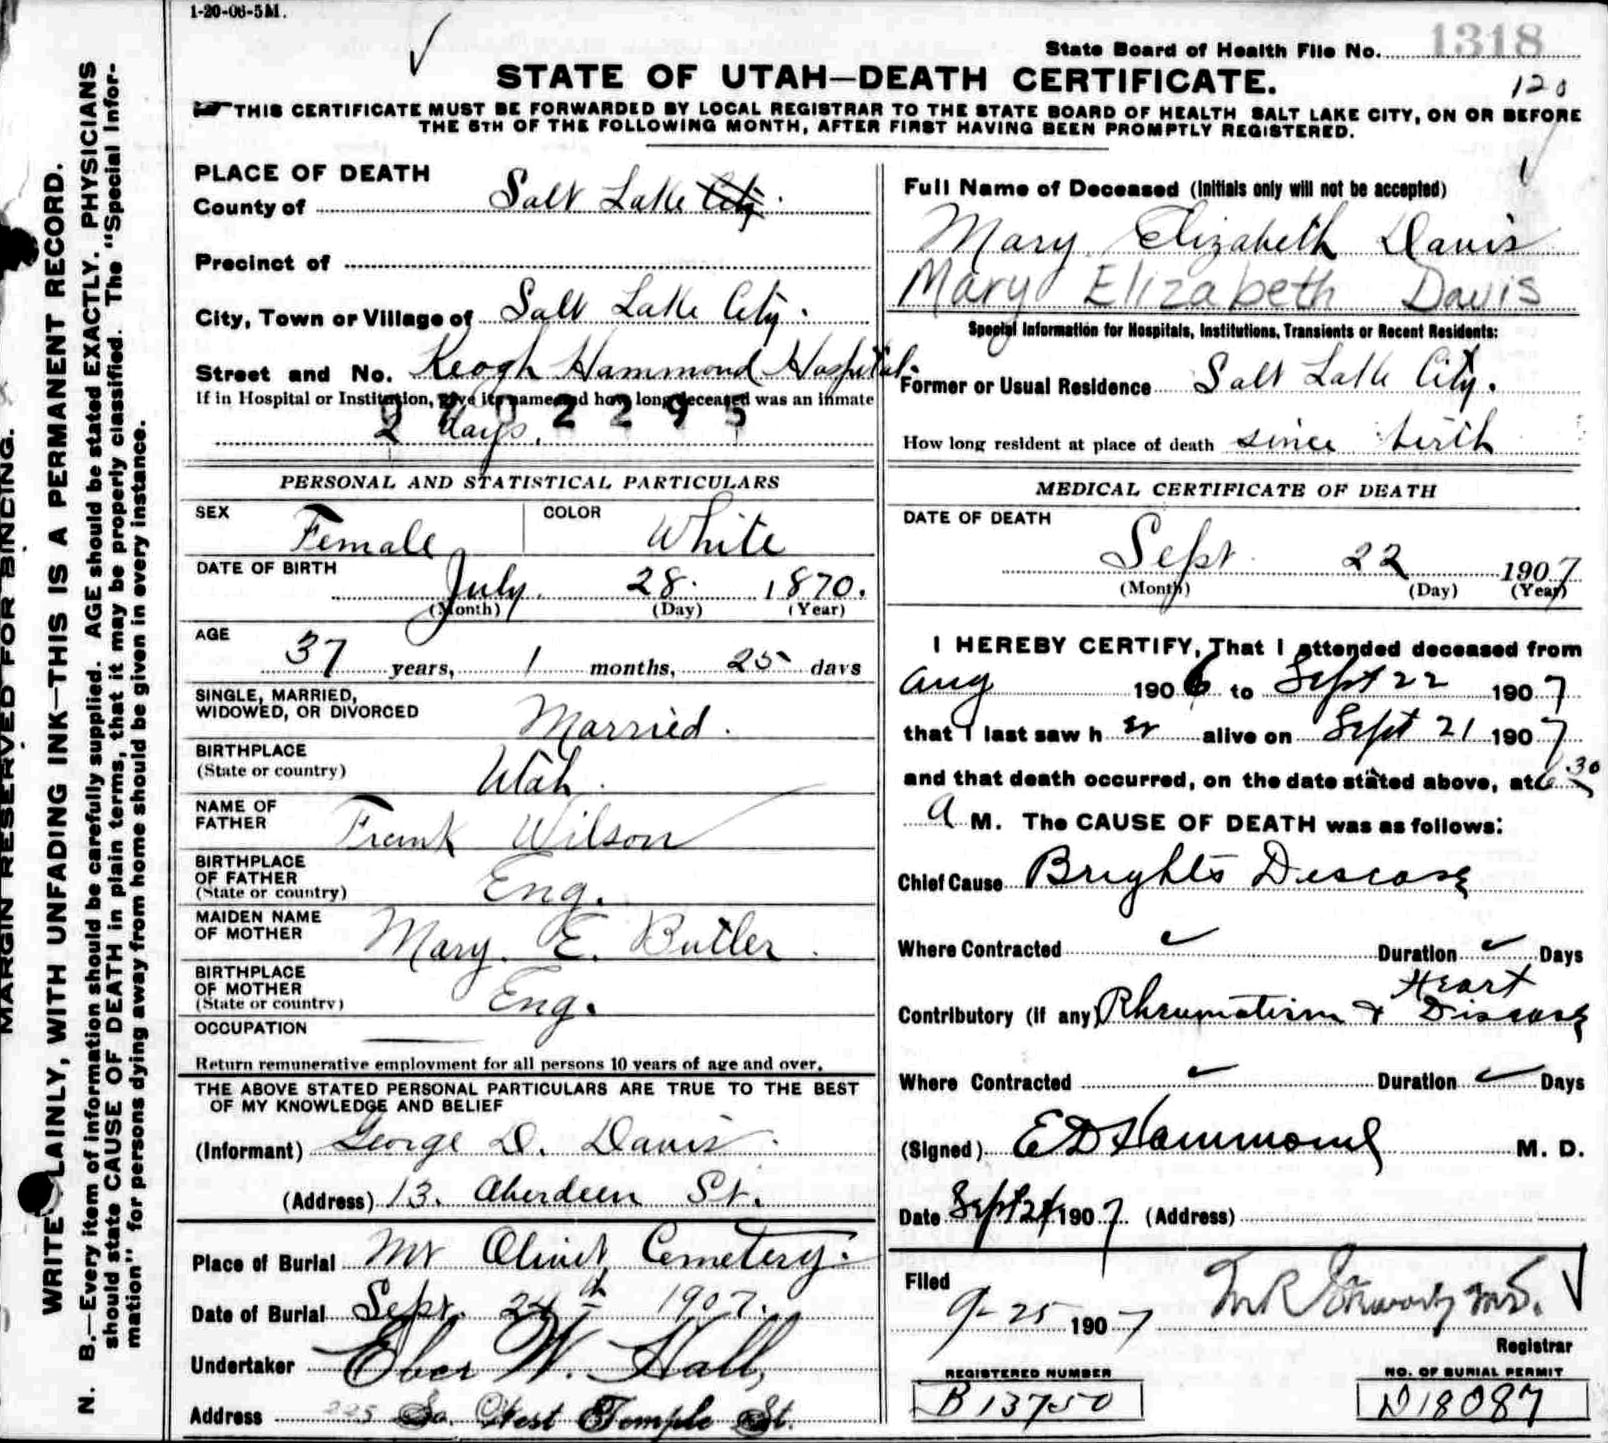 1-20-06-5M.
State Board of Health File No. 1318
120
STATE OF UTAH—DEATH CERTIFICATE.
THIS CERTIFICATE MUST BE FORWARDED BY LOCAL REGISTRAR TO THE STATE BOARD OF HEALTH SALT LAKE CITY, ON OR BEFORE
THE 5TH OF THE FOLLOWING MONTH, AFTER FIRST HAVING BEEN PROMPTLY REGISTERED.
MARGIN RESERVED FOR BINDING.
WRITE PLAINLY, WITH UNFADING INK—THIS IS A PERMANENT RECORD.
N. B.—Every item of information should be carefully supplied. AGE should be stated EXACTLY. PHYSICIANS
should state CAUSE OF DEATH in plain terms, that it may be properly classified. The "Special Infor-
mation" for persons dying away from home should be given in every instance.
PLACE OF DEATH
County of Salt Lake City.
Precinct of
City, Town or Village of Salt Lake City.
Street and No. Keogh Hammond Hospital.
If in Hospital or Institution, give its name and how long deceased was an inmate
2 days.
PERSONAL AND STATISTICAL PARTICULARS
SEX Female COLOR White
DATE OF BIRTH
July 28. 1870.
(Month) (Day) (Year)
AGE
37 years, 1 months, 25 days
SINGLE, MARRIED,
WIDOWED, OR DIVORCED Married.
BIRTHPLACE
(State or country) Utah.
NAME OF
FATHER Frank Wilson
BIRTHPLACE
OF FATHER
(State or country) Eng.
MAIDEN NAME
OF MOTHER Mary. E. Butler.
BIRTHPLACE
OF MOTHER
(State or country) Eng.
OCCUPATION
Return remunerative employment for all persons 10 years of age and over.
THE ABOVE STATED PERSONAL PARTICULARS ARE TRUE TO THE BEST
OF MY KNOWLEDGE AND BELIEF
(Informant) George D. Davis.
(Address) 13. Aberdeen St.
Place of Burial Mt Olivet Cemetery.
Date of Burial Sept. 24th 1907.
Undertaker Eber W. Hall,
Address 225 So. West Temple St.
Full Name of Deceased (Initials only will not be accepted)
Mary Elizabeth Davis
Mary Elizabeth Davis
Special Information for Hospitals, Institutions, Transients or Recent Residents:
Former or Usual Residence Salt Lake City.
How long resident at place of death since birth
MEDICAL CERTIFICATE OF DEATH
DATE OF DEATH
Sept 22 1907
(Month) (Day) (Year)
I HEREBY CERTIFY, That I attended deceased from
Aug 1906 to Sept 22 1907
that I last saw h er alive on Sept 21 1907
and that death occurred, on the date stated above, at 6 30
A M. The CAUSE OF DEATH was as follows:
Chief Cause Brights Disease
Where Contracted Duration Days
Contributory (if any) Rheumatism & Heart Disease
Where Contracted Duration Days
(Signed) E D Hammond M. D.
Date Sept 24 1907 (Address)
Filed
9-25 1907
Registrar
REGISTERED NUMBER
B 13750
NO. OF BURIAL PERMIT
D 18087